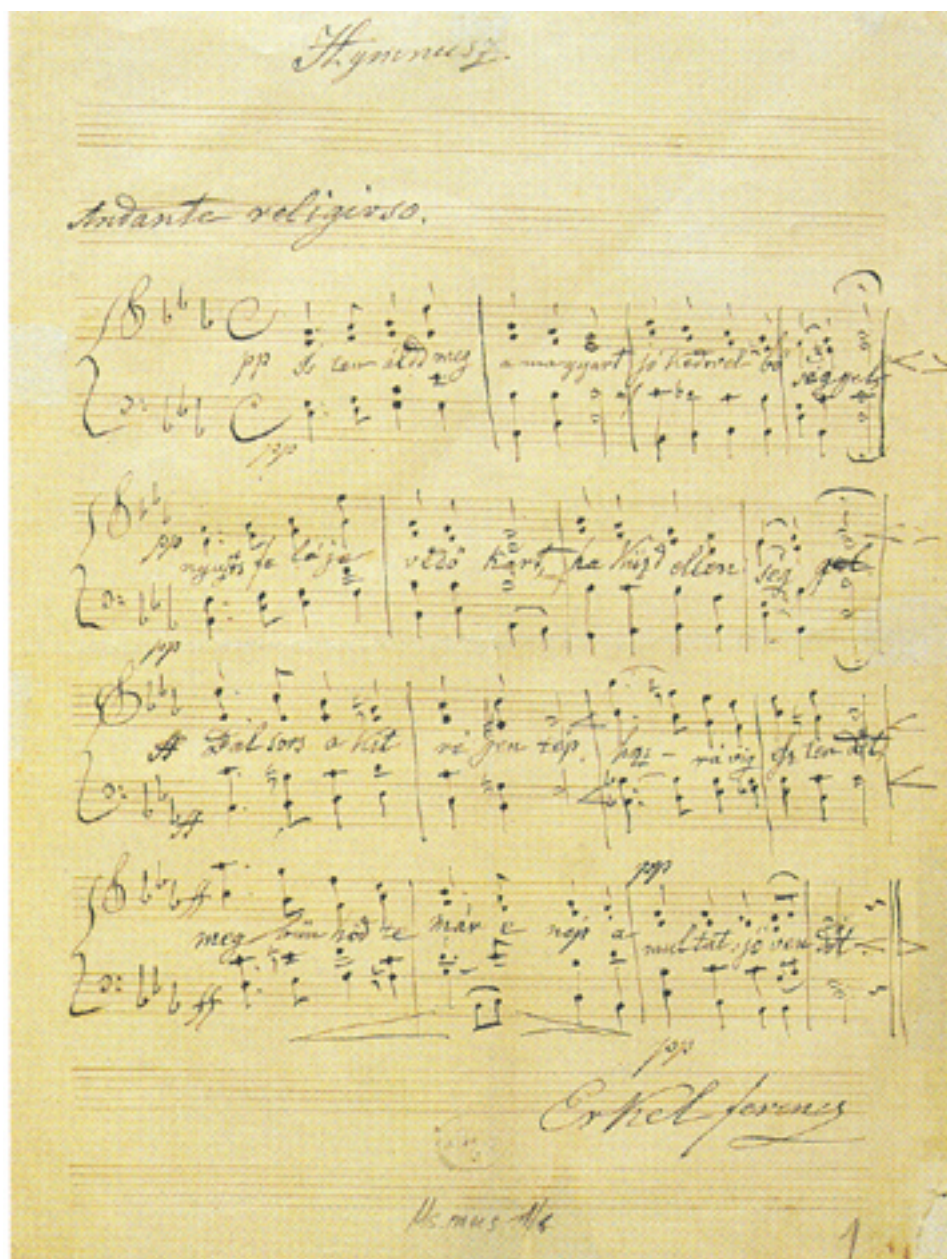 Hymnusz.
Andante religioso.
pp Isten áldd meg a magyart jó kedvvel bő séggel
pp
pp nyujts fe léje védő kart, ha küzd ellen ség gel
pp
ff Bal sors a kit ré gen tép, hoz - rá víg esz ten dőt,
ff
ff pp
meg bűn hőd te már e nép a multat jö ven dőt
ff
pp
Erkel Ferencz
Ms. mus.
1